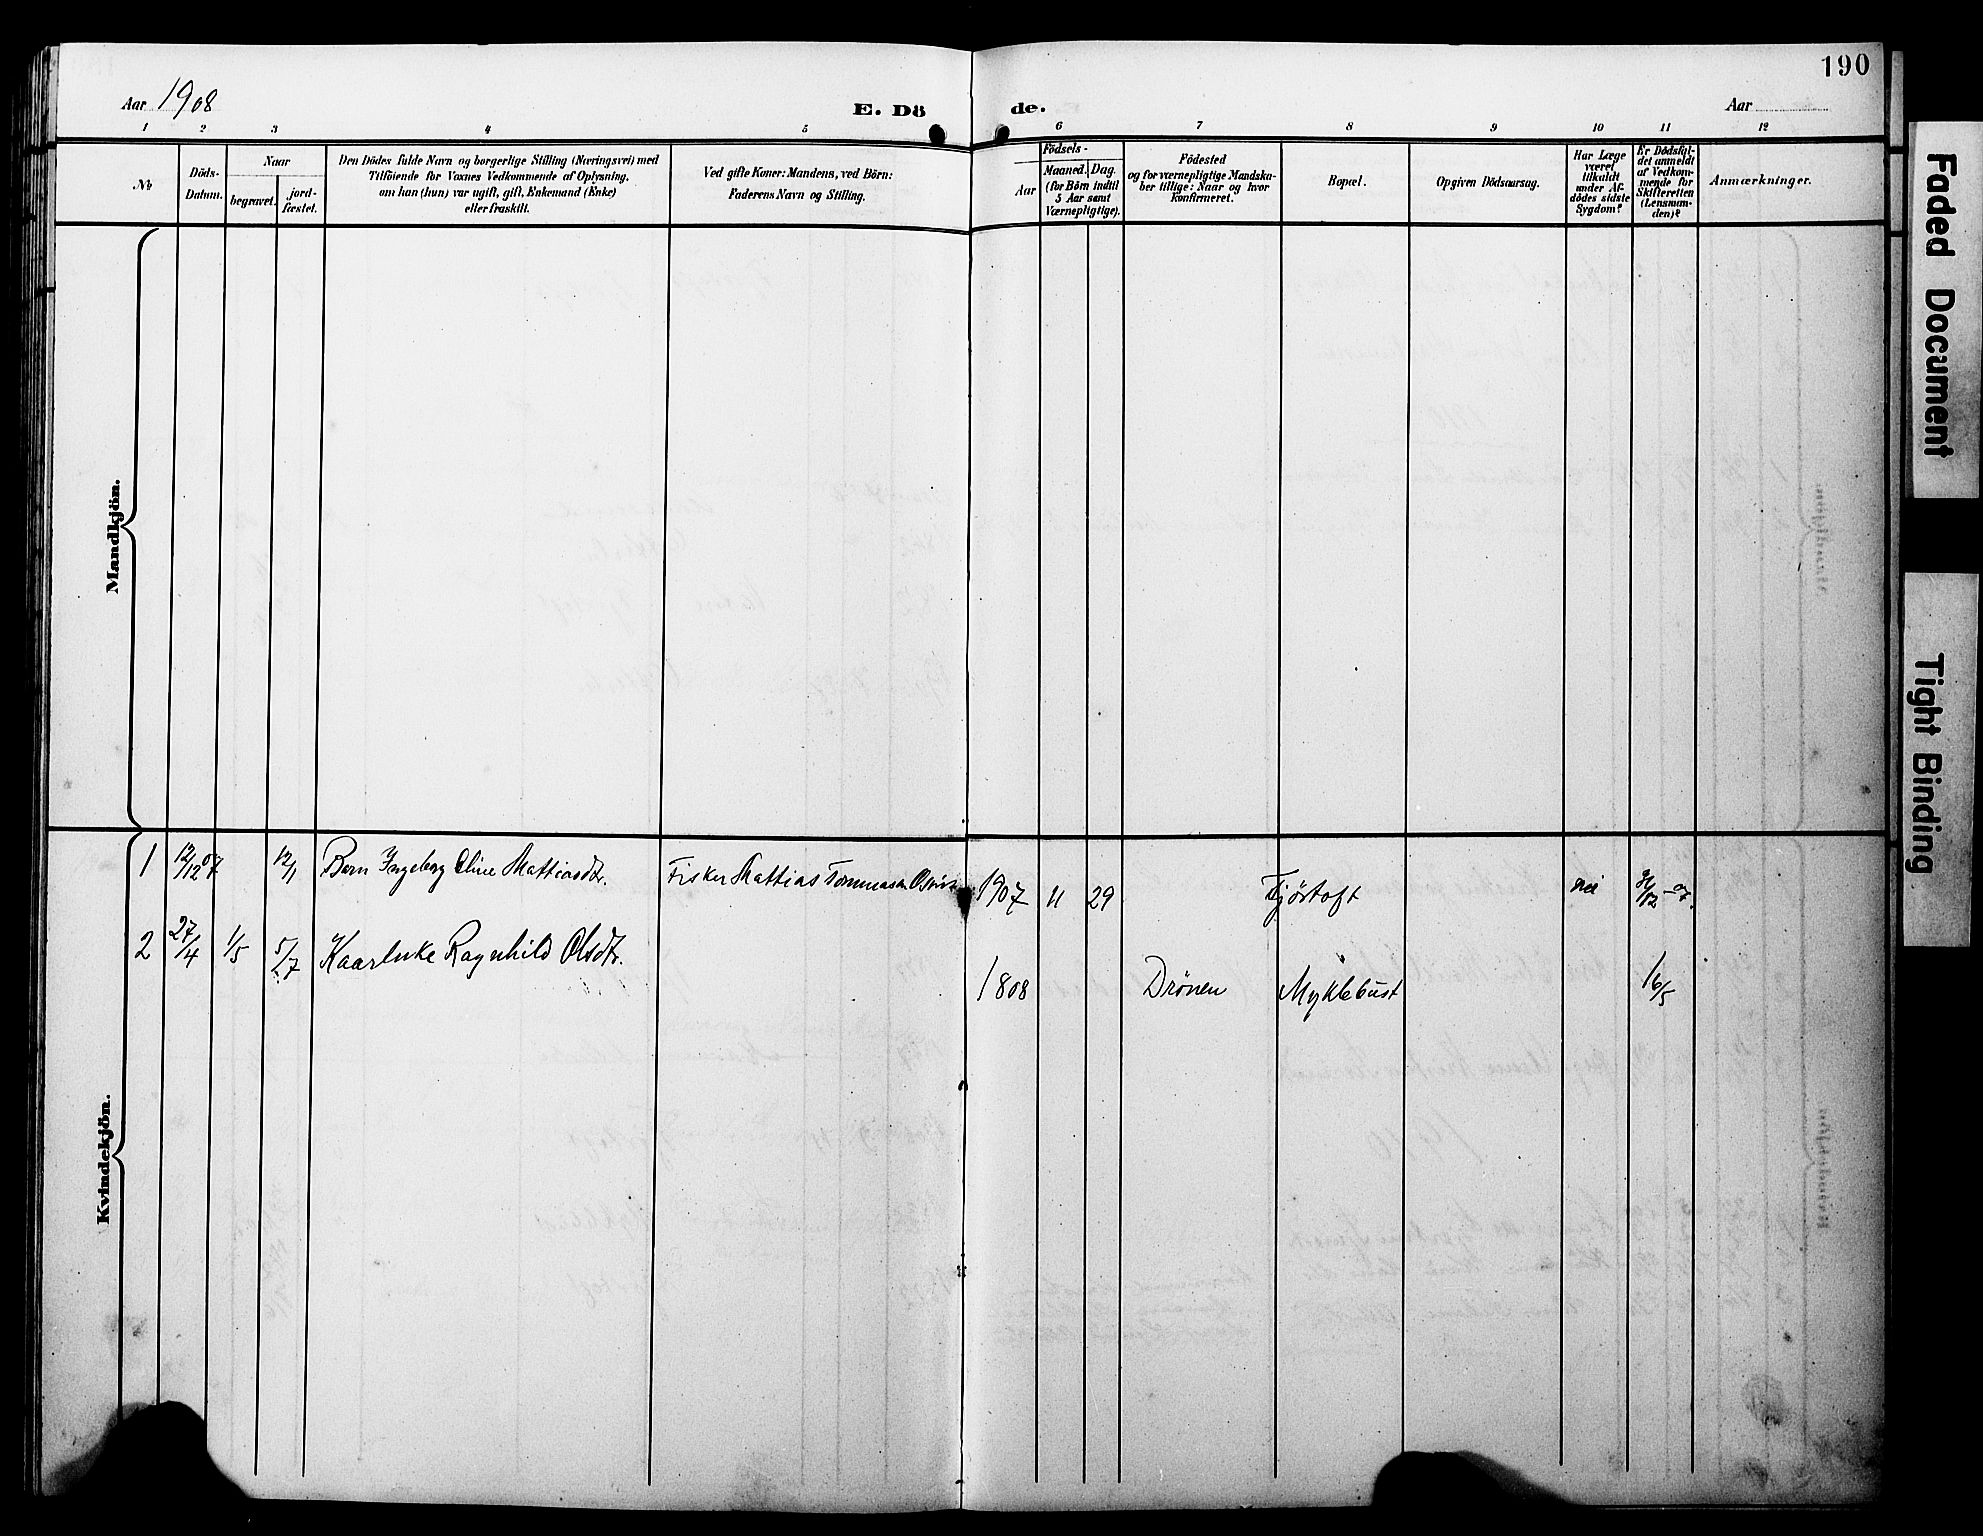 190
Aar 1908
E. Dö
de.
Aar
1 2 3 4 5 6 7 8 9 10 11 12
No
Döds-
Datum.
Naar
begravet.
jord-
fæstet.
Den Dödes fulde Navn og borgerlige Stilling (Næringsvei) med
Tilföiende for Voxnes Vedkommende af Oplysning,
om han (hun) var ugift, gift, Enkemand (Enke)
eller fraskilt.
Ved gifte Koner: Mandens, ved Börn:
Faderens Navn og Stilling.
Födsels-
Aar
Maaned.
Dag.
(for Börn indtil
5 Aar samt
Værnepligtige).
Födested
og for værnepligtige Mandska-
ber tillige: Naar og hvor
konfirmeret.
Bopæl.
Opgiven Dödsaarsag.
Har Læge
været
tilkaldt
under Af-
dödes sidste
Sygdom?
Er Dödsfal-
det anmeldt
af Vedkom-
mende for
Skifteretten
(Lensman-
den)?
Anmærkninger.
Mandkjön.
Kvindekjön.
1 12/12 07 12/1 Barn Ingeborg Oline Mattiasdtr. Fisker Mattias Tommasen
1907 11 29 Fjörtoft nei
2 27/4 1/5 5/7 Ragnhild Olsdtr.
1808 Drönen Myklebust 16/5
Faded Document
Tight Binding